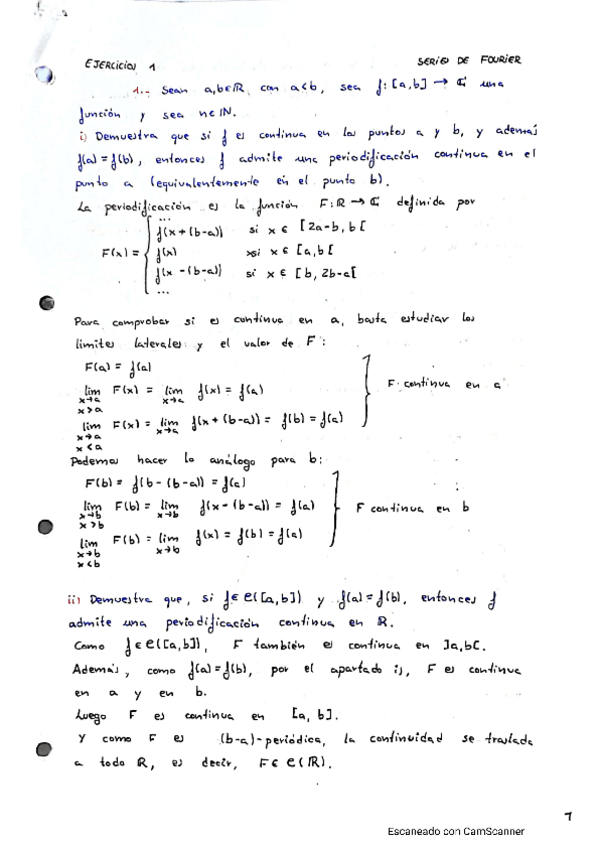 EJERCICIOS 1
SERIES DE FOURIER
1.- Sean a,b∈ℝ con a<b, sea f:[a,b] → ℂ una
función y sea n∈ℕ.
i) Demuestra que si f es continua en los puntos a y b, y además
f(a) = f(b), entonces f admite una periodificación continua en el
punto a (equivalentemente en el punto b).
La periodificación es la función F:ℝ → ℂ definida por
...
f(x+(b-a)) si x ∈ [2a-b, b[
F(x) = f(x) si x ∈ [a,b[
f(x-(b-a)) si x ∈ [b, 2b-a[
...
Para comprobar si es continua en a, basta estudiar los
límites laterales y el valor de F:
F(a) = f(a)
lim x→a x>a F(x) = lim x→a f(x) = f(a)
F continua en a
lim x→a x<a F(x) = lim x→a f(x+(b-a)) = f(b) = f(a)
Podemos hacer lo análogo para b:
F(b) = f(b-(b-a)) = f(a)
lim x→b x>b F(b) = lim x→b f(x-(b-a)) = f(a)
F continua en b
lim x→b x<b F(b) = lim x→b f(x) = f(b) = f(a)
ii) Demuestra que, si f∈C([a,b]) y f(a) = f(b), entonces f
admite una periodificación continua en ℝ.
Como f∈C([a,b]), F también es continua en ]a,b[.
Además, como f(a) = f(b), por el apartado i), F es continua
en a y en b.
Luego F es continua en [a,b].
Y como F es (b-a)-periódica, la continuidad se traslada
a todo ℝ, es decir, F∈C(ℝ).
1
Escaneado con CamScanner